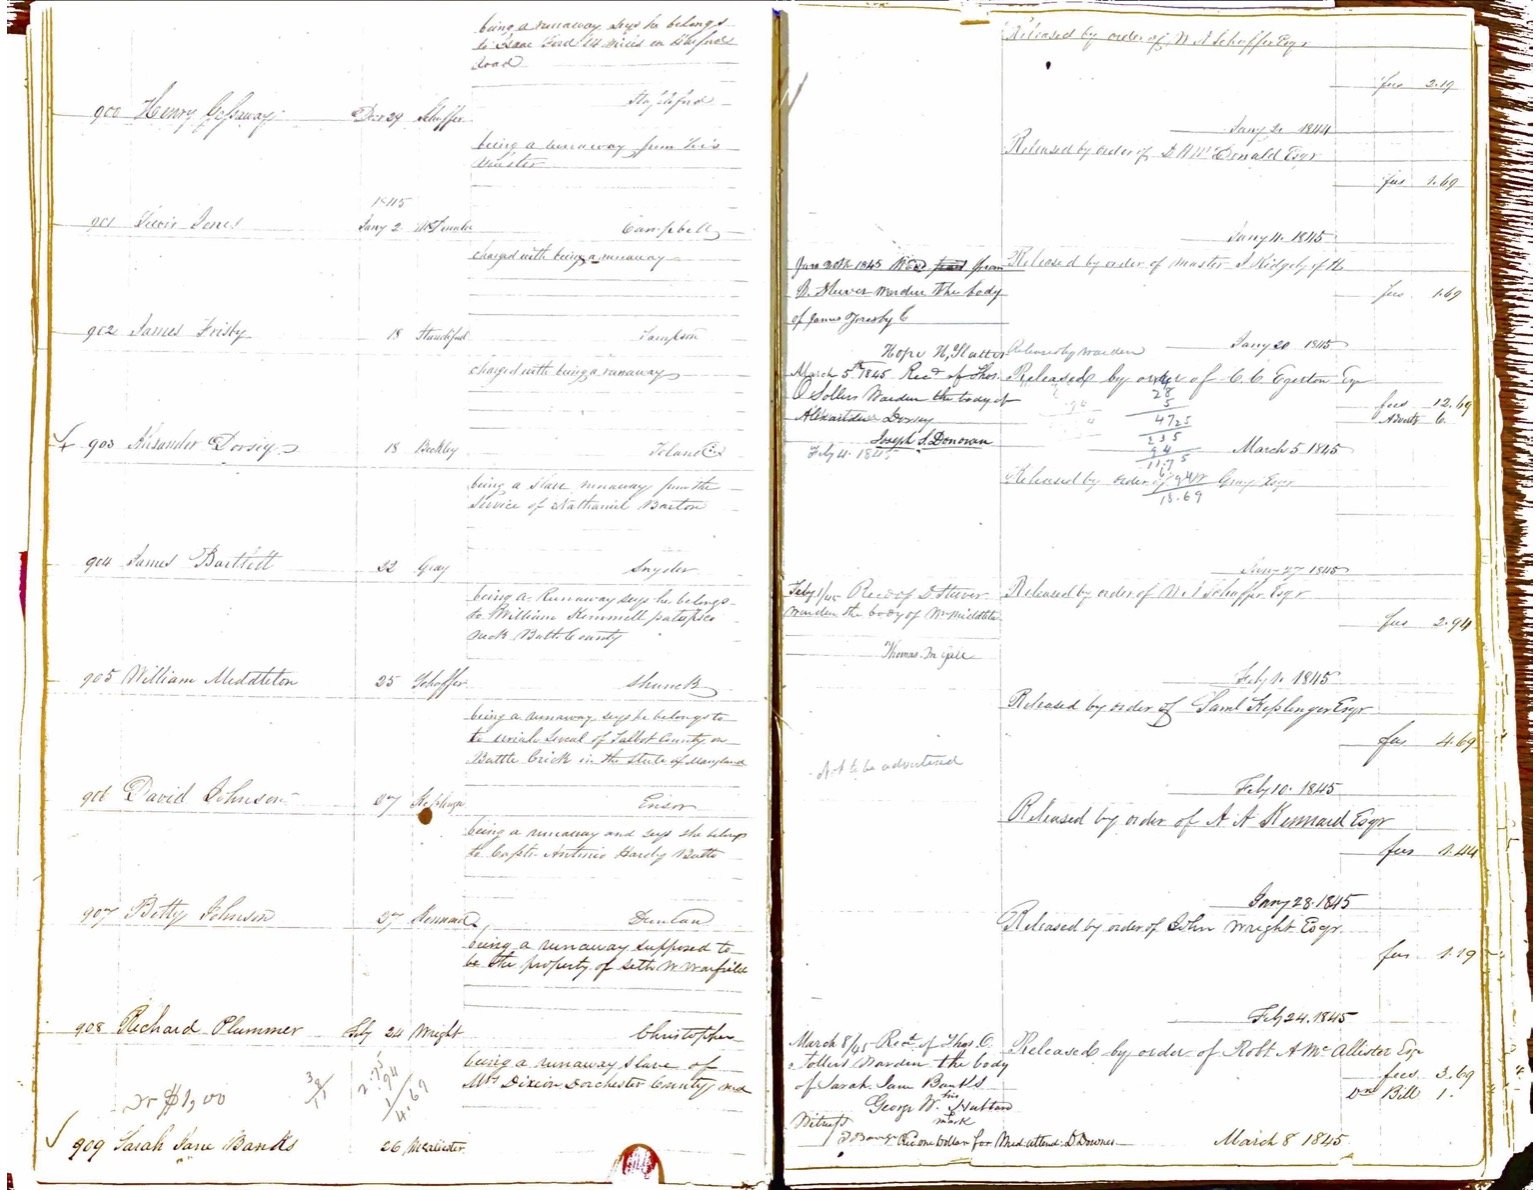 being a runaway says he belongs
to Isaac Ford 14 miles on Harford
Road
Standiford
900 Henry Gassaway Decr 29 Schaffer
being a runaway from his
Master
1845
901 Lewis Jones Jany 2 Campbell
charged with being a runaway
902 James Frisby 18 Standiford Sampson
charged with being a runaway
903 Alexander Dorsey 18 Beckley
being a Slave runaway from the
Service of Nathaniel Barton
904 James Bartlett 22 Gray Snyder
being a Runaway says he belongs
to William Kemmell patapsco
neck Balt County
905 William Middleton 25 Schaffer Shunck
being a runaway says he belongs to
of Talbot County on
Battle Crick in the State of Maryland
906 David Johnson 07 Keplinger Ensor
being a runaway and says she belongs
to Capt. Antonio Hardy Balto
907 Betty Johnson 27 Kennard Duncan
being a runaway supposed to
be the property of Seth W Warfield
908 Richard Plummer Feby 24 Wright Christopher
being a runaway slave of
Mrs Dixion Dorchester County md
Dr $1,00
2.75
94
1
4.69
909 Sarah Jane Banks 26 McAlister
Released by order of N A Schaffer Esqr
fees 2.19
Jany 2. 1844
Released by order of D A McDonald Esqr
fees 1.69
Jany 4. 1845
Released by order of master J Ridgely of H
fees 1.69
Jany 20th 1845 Recd from
D. Stewer Warden the body
of James Frisby
Hope H, Slatter
Released by Warden
Jany 20 1845
March 5th 1845 Recd of Thos.
O Sollers Warden the body of
Alexander Dorsey
Joseph S. Donovan
Feby 4. 1845
Released by order of C. C. Egerton Esqr
28
5
47 25
235
94
11.75
6 94
18.69
fees 12.69
Adverts 6.
March 5 1845
Released by order of Gray Esqr
Jany 27 1845
Feby 1/45 Recd of D Stewer
Warden the body of Wm Middleton
Thomas M Gale
Released by order of N A Schaffer Esqr
fees 2.94
Feby 1. 1845
Released by order of Saml Keplinger Esqr
fees 4.69
Not to be advertised
Feby 10. 1845
Released by order of A A Kennard Esqr
fees 1.44
Jany 28. 1845
Released by order of John Wright Esqr.
fees 1.19
Feb 24. 1845
March 8/45 Recd of Thos. O.
Sollers Warden the body
of Sarah Jane Banks
George W. his Hubbard
mark
Witness
Rec one Dollar for Med attend. D Downes
Released by order of Robt A McAllister Esqr
fees 3.69
Dr Bill 1.
March 8 1845